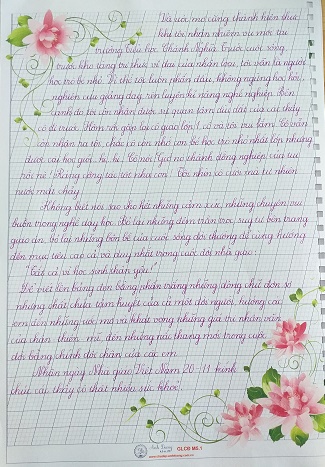 Đã vài mơ ước thành hiện thực
khi tôi nhận nhiệm vụ mới tại
trường tiểu học Chánh Nghĩa. Trước cuộc sống
trước kho tàng tri thức vĩ đại của nhân loại, tôi vẫn là người
học trò bé nhỏ. Vì thế tôi luôn phấn đấu, không ngừng học hỏi,
nghiên cứu giảng dạy, rèn luyện kĩ năng nghề nghiệp. Bên
cạnh đó tôi còn nhận được sự quan tâm dìu dắt của các thầy
cô đi trước. Hôm nay gặp lại cô giáo lớp 1, cô và tôi vui lắm. Cô vẫn
còn nhận ra tôi, chắc có còn nhớ con bé học trò nhỏ nhất lớp nhưng
được cái học giỏi, hi, hi! Cô nói: Giờ nó thành đồng nghiệp của tui
rồi nè! Ráng công tác tốt nha con! Tôi nhìn cô cười mà tự nhiên
nước mắt chảy!
Không biết nói sao cho hết những cảm xúc, những chuyện vui
buồn trong nghề dạy học. Bỏ lại những đêm trăn trở, suy tư bên trang
giáo án, bỏ lại những bộn bề của cuộc sống đời thường để cùng hướng
đến mục tiêu cao cả và duy nhất trong cuộc đời nhà giáo:
"Tất cả vì học sinh thân yêu"
Để viết lên bảng đen bằng phấn trắng những dòng chữ đơn sơ
nhưng chất chứa tâm huyết của cả một đời người, hướng các
em đến những ước mơ và khát vọng, những giá trị nhân văn
của chân - thiện - mĩ, đến những nấc thang mới trong cuộc
đời bằng chính đôi chân của các em.
Nhân ngày Nhà giáo Việt Nam 20-11 kính
chúc các thầy cô thật nhiều sức khoẻ!
GLCS MS.1